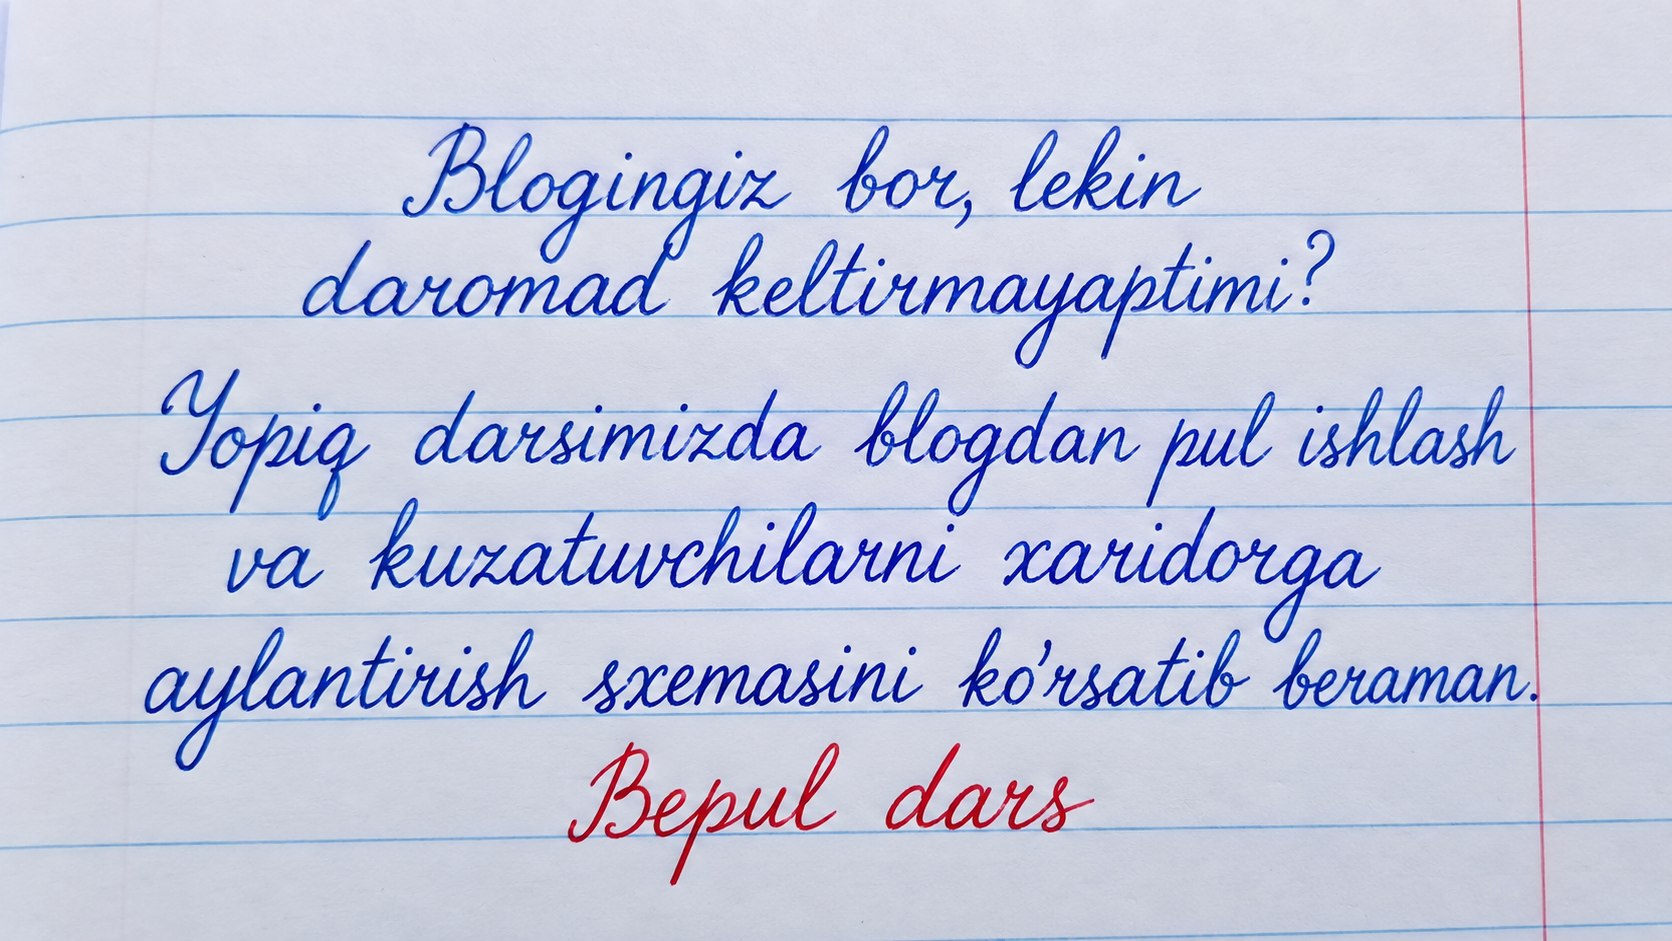 Blogingiz bor, lekin
daromad keltirmayaptimi?
Yopiq darsimizda blogdan pul ishlash
va kuzatuvchilarni xaridorga
aylantirish sxemasini ko'rsatib beraman.
Bepul dars